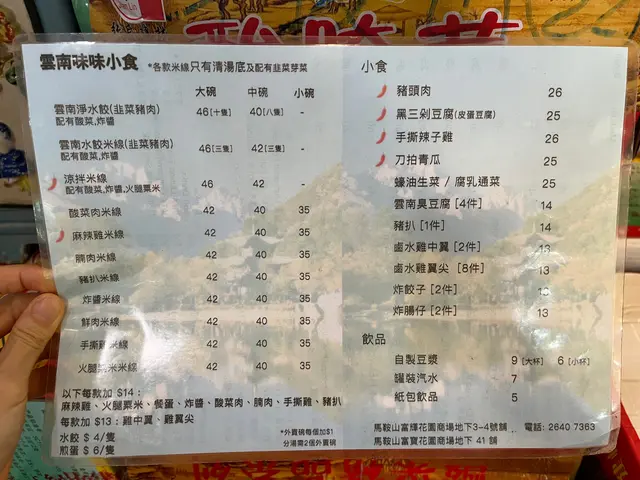 雲南味味小食
*各款米線只有清湯底及配有韭菜芽菜
大碗 中碗 小碗
雲南淨水餃(韭菜豬肉) 46[十隻] 40[八隻] -
配有酸菜,炸醬
雲南水餃米線(韭菜豬肉) 46[三隻] 42[三隻] -
配有酸菜,炸醬
涼拌米線 46 42 -
配有酸菜,炸醬,火腿粟米
酸菜肉米線 42 40 35
麻辣雞米線 42 40 35
腩肉米線 42 40 35
豬扒米線 42 40 35
炸醬米線 42 40 35
鮮肉米線 42 40 35
手撕雞米線 42 40 35
火腿粟米米線 42 40 35
以下每款加 $14：
麻辣雞、火腿粟米、餐蛋、炸醬、酸菜肉、腩肉、手撕雞、豬扒
每款加 $13：雞中翼、雞翼尖
水餃 $ 4/隻
煎蛋 $ 6/隻
*外賣碗每個加$1
分湯需2個外賣碗
小食
豬頭肉 26
黑三剁豆腐(皮蛋豆腐) 25
手撕辣子雞 26
刀拍青瓜 25
蠔油生菜 / 腐乳通菜 25
雲南臭豆腐 [4件] 14
豬扒 [1件] 14
鹵水雞中翼 [2件] 13
鹵水雞翼尖 [8件] 13
炸餃子 [2件] 13
炸腸仔 [2件] 13
飲品
自製豆漿 9 [大杯] 6 [小杯]
罐裝汽水 7
紙包飲品 5
馬鞍山富輝花園商場地下3-4號舖 電話: 2640 7363
馬鞍山富寶花園商場地下 41 舖